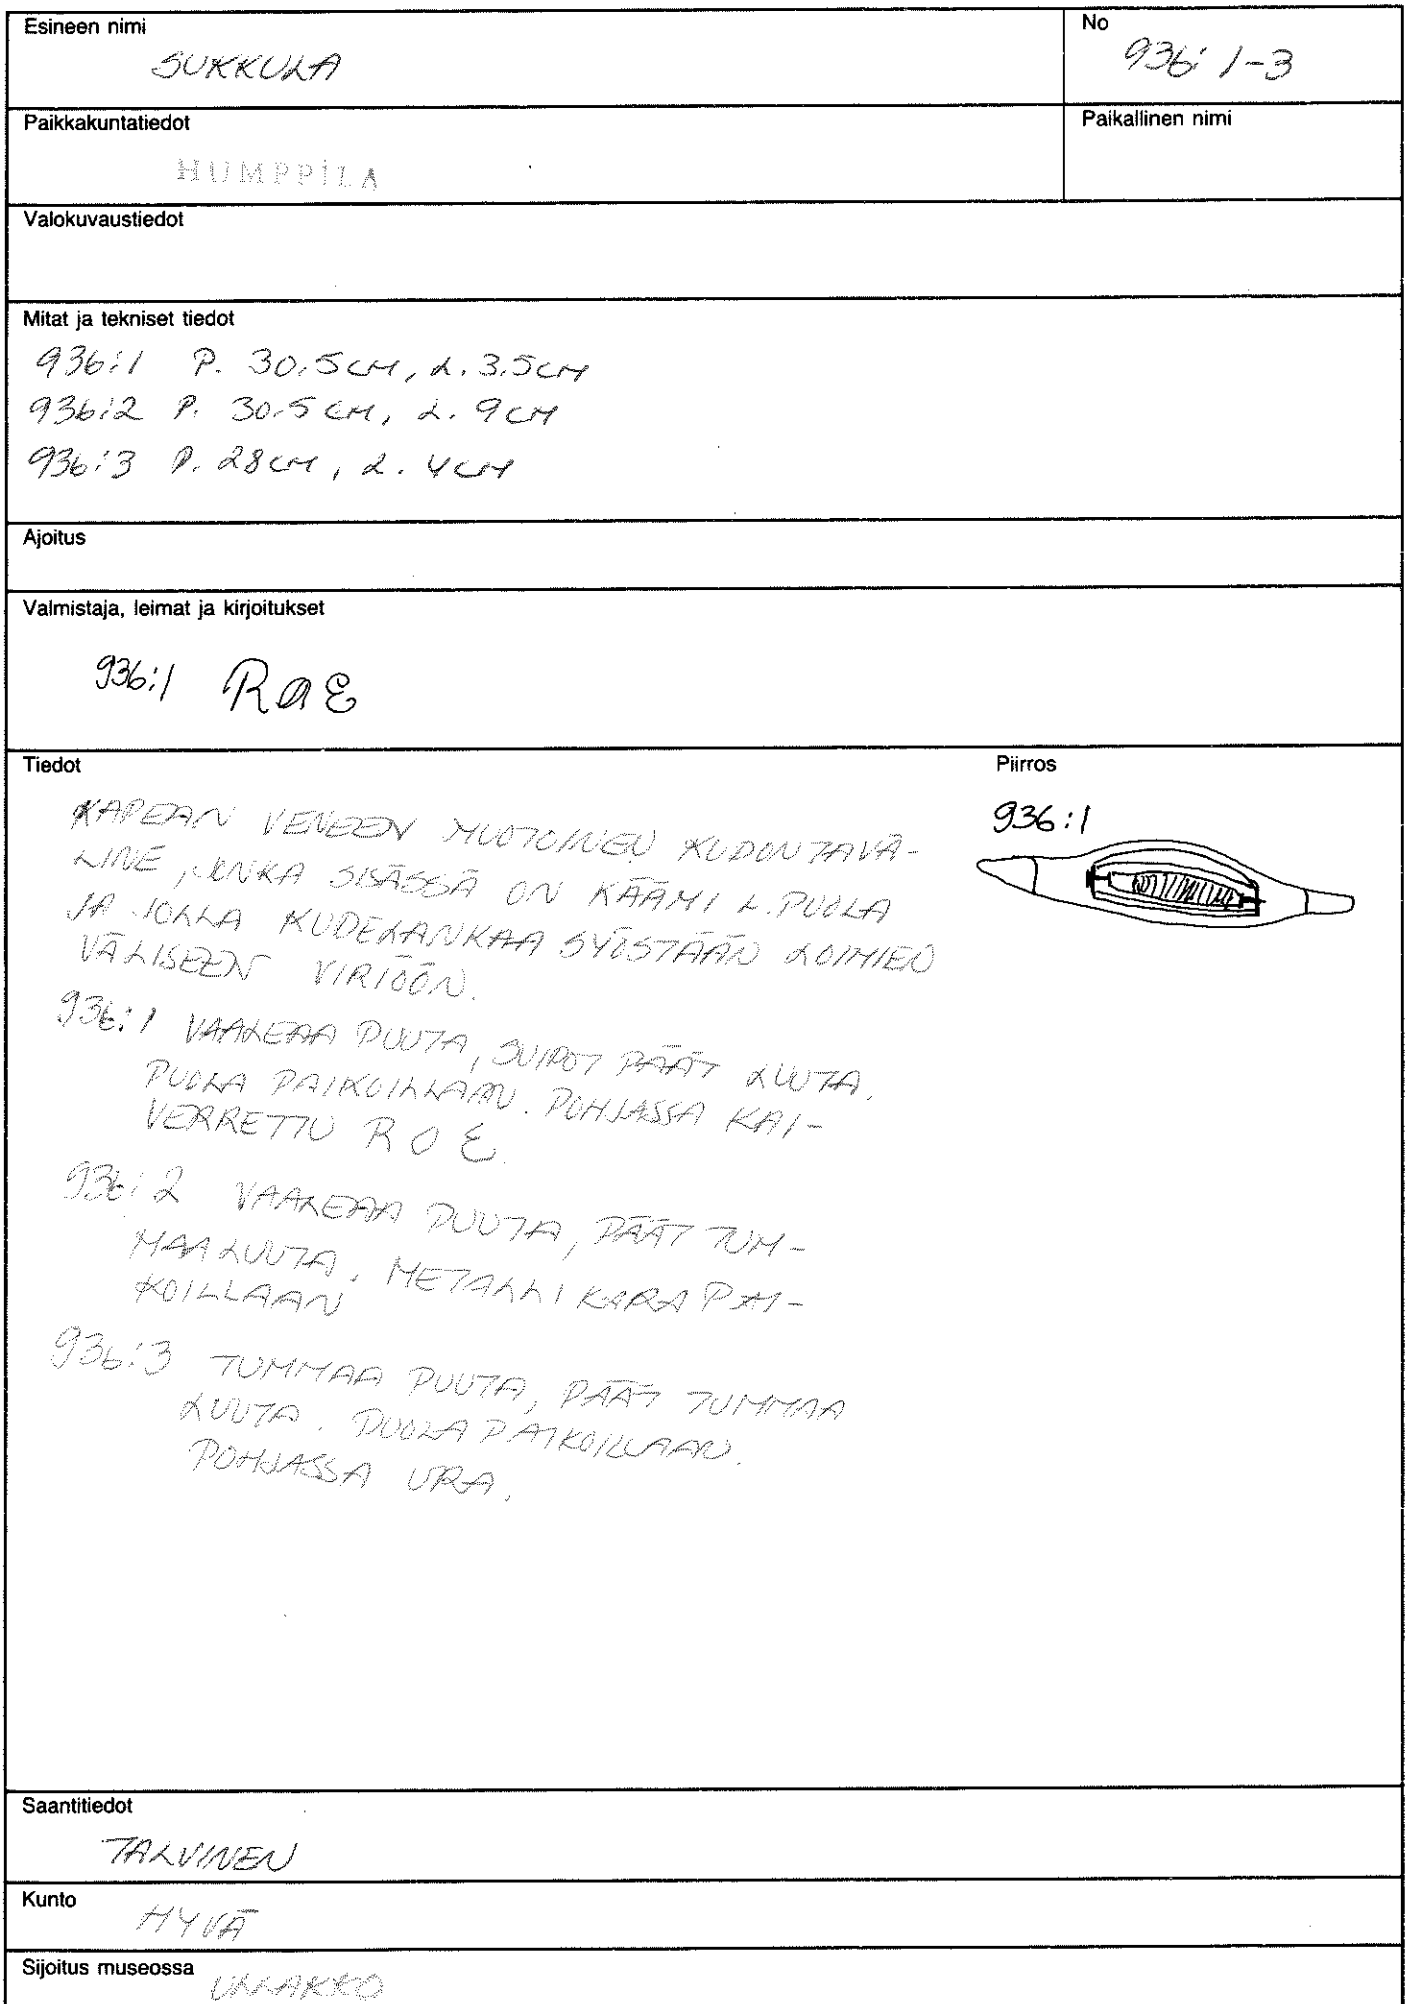 Esineen nimi
SUKKULA
No
936: 1-3
Paikkakuntatiedot
HUMPPILA
Paikallinen nimi
Valokuvaustiedot
Mitat ja tekniset tiedot
936:1 P. 30.5 CM, L. 3.5 CM
936:2 P. 30.5 CM, L. 9 CM
936:3 P. 28 CM, L. 4 CM
Ajoitus
Valmistaja, leimat ja kirjoitukset
936:1 R O E
Tiedot
KAPEAN VENEEN MUOTOINEN KUDONTAVÄ-
LINE, JONKA SISÄSSÄ ON KÄÄMI L. PUOLA
JA JOLLA KUDELANKAA SYÖSTÄÄN LOIMIEN
VÄLISEEN VIRIÖÖN.
936:1 VAALEAA PUUTA, SUIPOT PÄÄT LUUTA.
PUOLA PAIKOILLAAN. POHJASSA KAI-
VERRETTU R O E.
936:2 VAALEAA PUUTA, PÄÄT TUM-
MAA LUUTA. METALLIKARA PAI-
KOILLAAN
936:3 TUMMAA PUUTA, PÄÄT TUMMAA
LUUTA. PUOLA PAIKOILLAAN.
POHJASSA URA.
Piirros
936:1
Saantitiedot
TALVINEN
Kunto
HYVÄ
Sijoitus museossa
ULLAKKO